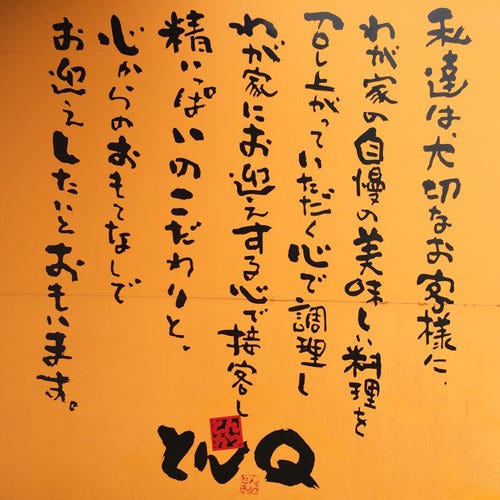 私達は、大切なお客様に、
わが家の自慢の美味しい料理を
召し上がっていただく心で調理し
わが家にお迎えする心で接客し
精いっぱいのこだわりと、
心からのおもてなしで
お迎えしたいとおもいます。
とんかつ
とんQ